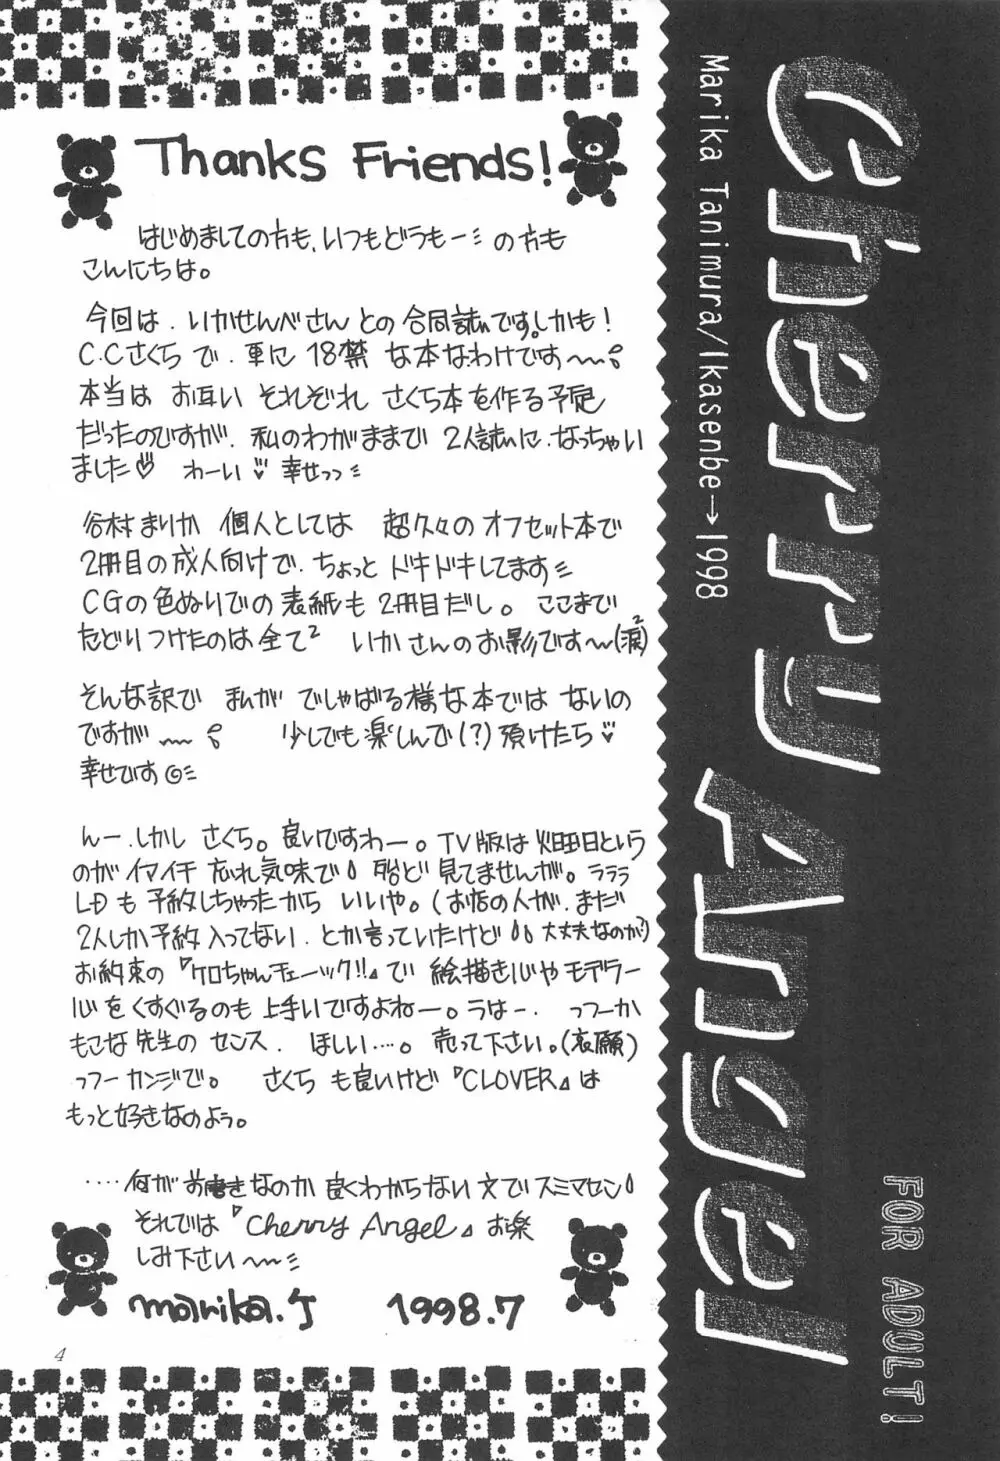 Thanks Friends!
はじめましての方も、いつもどうもーミの方も
こんにちは。
今回は、いかせんべさんとの合同誌です。しかも!
C.Cさくらで、更に18禁な本なわけです〜〜
本当はお互いそれぞれさくら本を作る予定
だったのですが、私のわがままで2人誌になっちゃい
ました♡ わーい♡ 幸せっっ
谷村まりか個人としては超久々のオフセット本で
2冊目の成人向けで、ちょっとドキドキしてます
CGの色ぬりでの表紙も2冊目だし。ここまで
たどりつけたのは全て² いかさんのお影です〜(涙²)
そんな訳でまんがでしゃばる様な本ではないの
ですが〜〜 少しでも楽しんで(?)頂けたら♡
幸せです◎
んー、しかしさくら。良いですわー。TV版は火曜日という
のがイマイチ忘れ気味で 殆ど見てませんが。ううう
LDも予約しちゃったからいいや。(お店の人が、まだ
2人しか予約入ってない、とか言っていたけど 大丈夫なのか?)
お約束の『ケロちゃんチェーック!!』で絵描き心やモデラー
心をくすぐるのも上手いですよねー。うはー、っつーか
もこな先生のセンス、ほしい…。売って下さい。(哀願)
っつーカンジで。 さくらも良いけど『CLOVER』は
もっと好きなのよう。
....何がお書きなのか良くわからない文でスミマセン
それでは『Cherry Angel』お楽
しみ下さい〜〜
marika.J 1998.7
4
Cherry Angel
Marika Tanimura/Ikasenbe→1998
FOR ADULT!